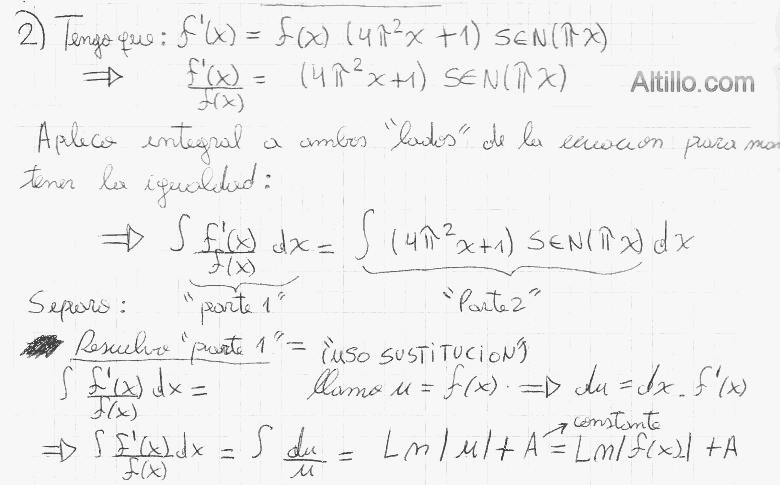 2) Tengo que: f'(x) = f(x) (4π²x + 1) SEN(πx)
⇒ f'(x)/f(x) = (4π²x+1) SEN(πx)
Altillo.com
Aplico integral a ambos "lados" de la ecuacion para man
tener la igualdad:
⇒ ∫ f'(x)/f(x) dx = ∫ (4π²x+1) SEN(πx) dx
Separo: "parte 1" "Parte 2"
Resuelvo "parte 1" = (USO SUSTITUCION)
∫ f'(x)/f(x) dx = llamo u = f(x) · ⇒ du = dx . f'(x)
constante
⇒ ∫ f'(x)/f(x) dx = ∫ du/u = Ln|u| + A = Ln|f(x)| + A